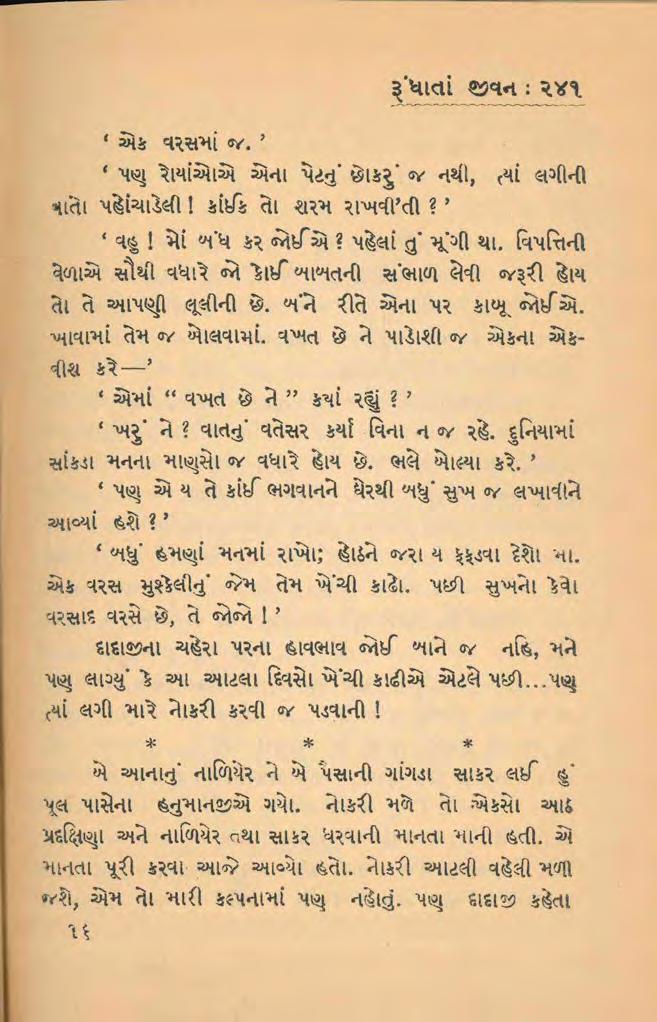 રૂંધાતાં જીવન : ૨૪૧
‘ એક વરસમાં જ. ’
‘ પણ રોયાંઓએ એના પેટનું છોકરું જ નથી, ત્યાં લગીની
વાતો પહોંચાડેલી ! કાંઈક તો શરમ રાખવી’તી ? ’
‘ વહુ ! મોં બંધ કર જોઈએ ? પહેલાં તું મૂંગી થા. વિપત્તિની
વેળાએ સૌથી વધારે જો કોઈ બાબતની સંભાળ લેવી જરૂરી હોય
તો તે આપણી લૂલીની છે. બંને રીતે એના પર કાબૂ જોઈએ.
ખાવામાં તેમ જ બોલવામાં. વખત છે ને પાડોશી જ એકના એક-
વીશ કરે—’
‘ એમાં “ વખત છે ને ” ક્યાં રહ્યું ? ’
‘ ખરું ને ? વાતનું વતેસર કર્યા વિના ન જ રહે. દુનિયામાં
સાંકડા મનના માણસો જ વધારે હોય છે. ભલે બોલ્યા કરે. ’
‘ પણ એ ય તે કાંઈ ભગવાનને ઘેરથી બધું સુખ જ લખાવીને
આવ્યાં હશે ? ’
‘ બધું હમણાં મનમાં રાખો; હોઠને જરા ય ફફડવા દેશો મા.
એક વરસ મુશ્કેલીનું જેમ તેમ ખેંચી કાઢો. પછી સુખનો કેવો
વરસાદ વરસે છે, તે જોજો ! ’
દાદાજીના ચહેરા પરના હાવભાવ જોઈ બાને જ નહિ, મને
પણ લાગ્યું કે આ આટલા દિવસો ખેંચી કાઢીએ એટલે પછી...પણ
ત્યાં લગી મારે નોકરી કરવી જ પડવાની !
* * *
બે આનાનું નાળિયેર ને બે પૈસાની ગાંગડા સાકર લઈ હું
પૂલ પાસેના હનુમાનજીએ ગયો. નોકરી મળે તો એકસો આઠ
પ્રદક્ષિણા અને નાળિયેર તથા સાકર ધરવાની માનતા માની હતી. એ
માનતા પૂરી કરવા આજે આવ્યો હતો. નોકરી આટલી વહેલી મળી
જશે, એમ તો મારી કલ્પનામાં પણ નહોતું. પણ દાદાજી કહેતા
૧૬